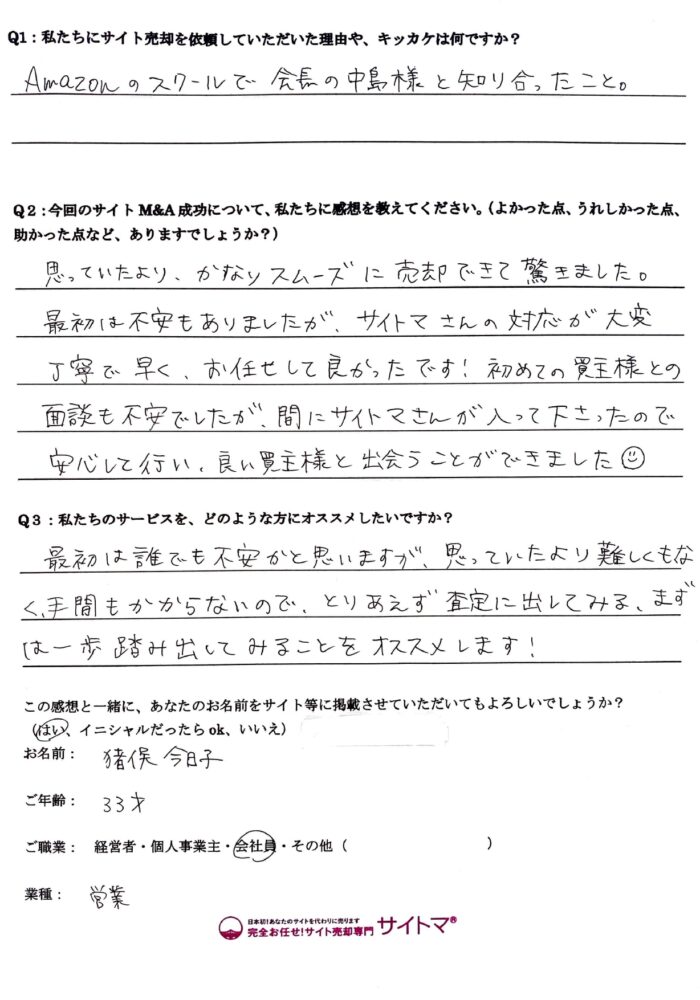 Q1：私たちにサイト売却を依頼していただいた理由や、キッカケは何ですか？
Amazonのスクールで 会長の中島様と知り合ったこと。
Q2：今回のサイトM&A成功について、私たちに感想を教えてください。（よかった点、うれしかった点、
助かった点など、ありますでしょうか？）
思っていたより、かなりスムーズに売却できて驚きました。
最初は不安もありましたが、サイトマさんの対応が大変
丁寧で早く、お任せして良かったです！初めての買主様との
面談も不安でしたが、間にサイトマさんが入って下さったので
安心して行い、良い買主様と出会うことができました☺
Q3：私たちのサービスを、どのような方にオススメしたいですか？
最初は誰でも不安かと思いますが、思っていたより難しくもな
く、手間もかからないので、とりあえず査定に出してみる、まず
は一歩踏み出してみることをオススメします！
この感想と一緒に、あなたのお名前をサイト等に掲載させていただいてもよろしいでしょうか？
（はい、イニシャルだったらok、いいえ）
お名前： 猪俣 今日子
ご年齢： 33才
ご職業： 経営者・個人事業主・会社員・その他（ ）
業種： 営業
日本初！あなたのサイトを代わりに売ります
完全お任せ！サイト売却専門 サイトマ®